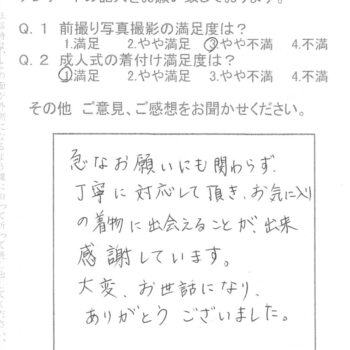 Q.１ 前撮り写真撮影の満足度は？
1.満足 2.やや満足 3.やや不満 4.不満
Q.２ 成人式の着付け満足度は？
1.満足 2.やや満足 3.やや不満 4.不満
その他 ご意見、ご感想をお聞かせください。
急なお願いにも関わらず、
丁寧に対応して頂き、お気に入り
の着物に出会えることが、出来
感謝しています。
大変、お世話になり、
ありがとうございました。